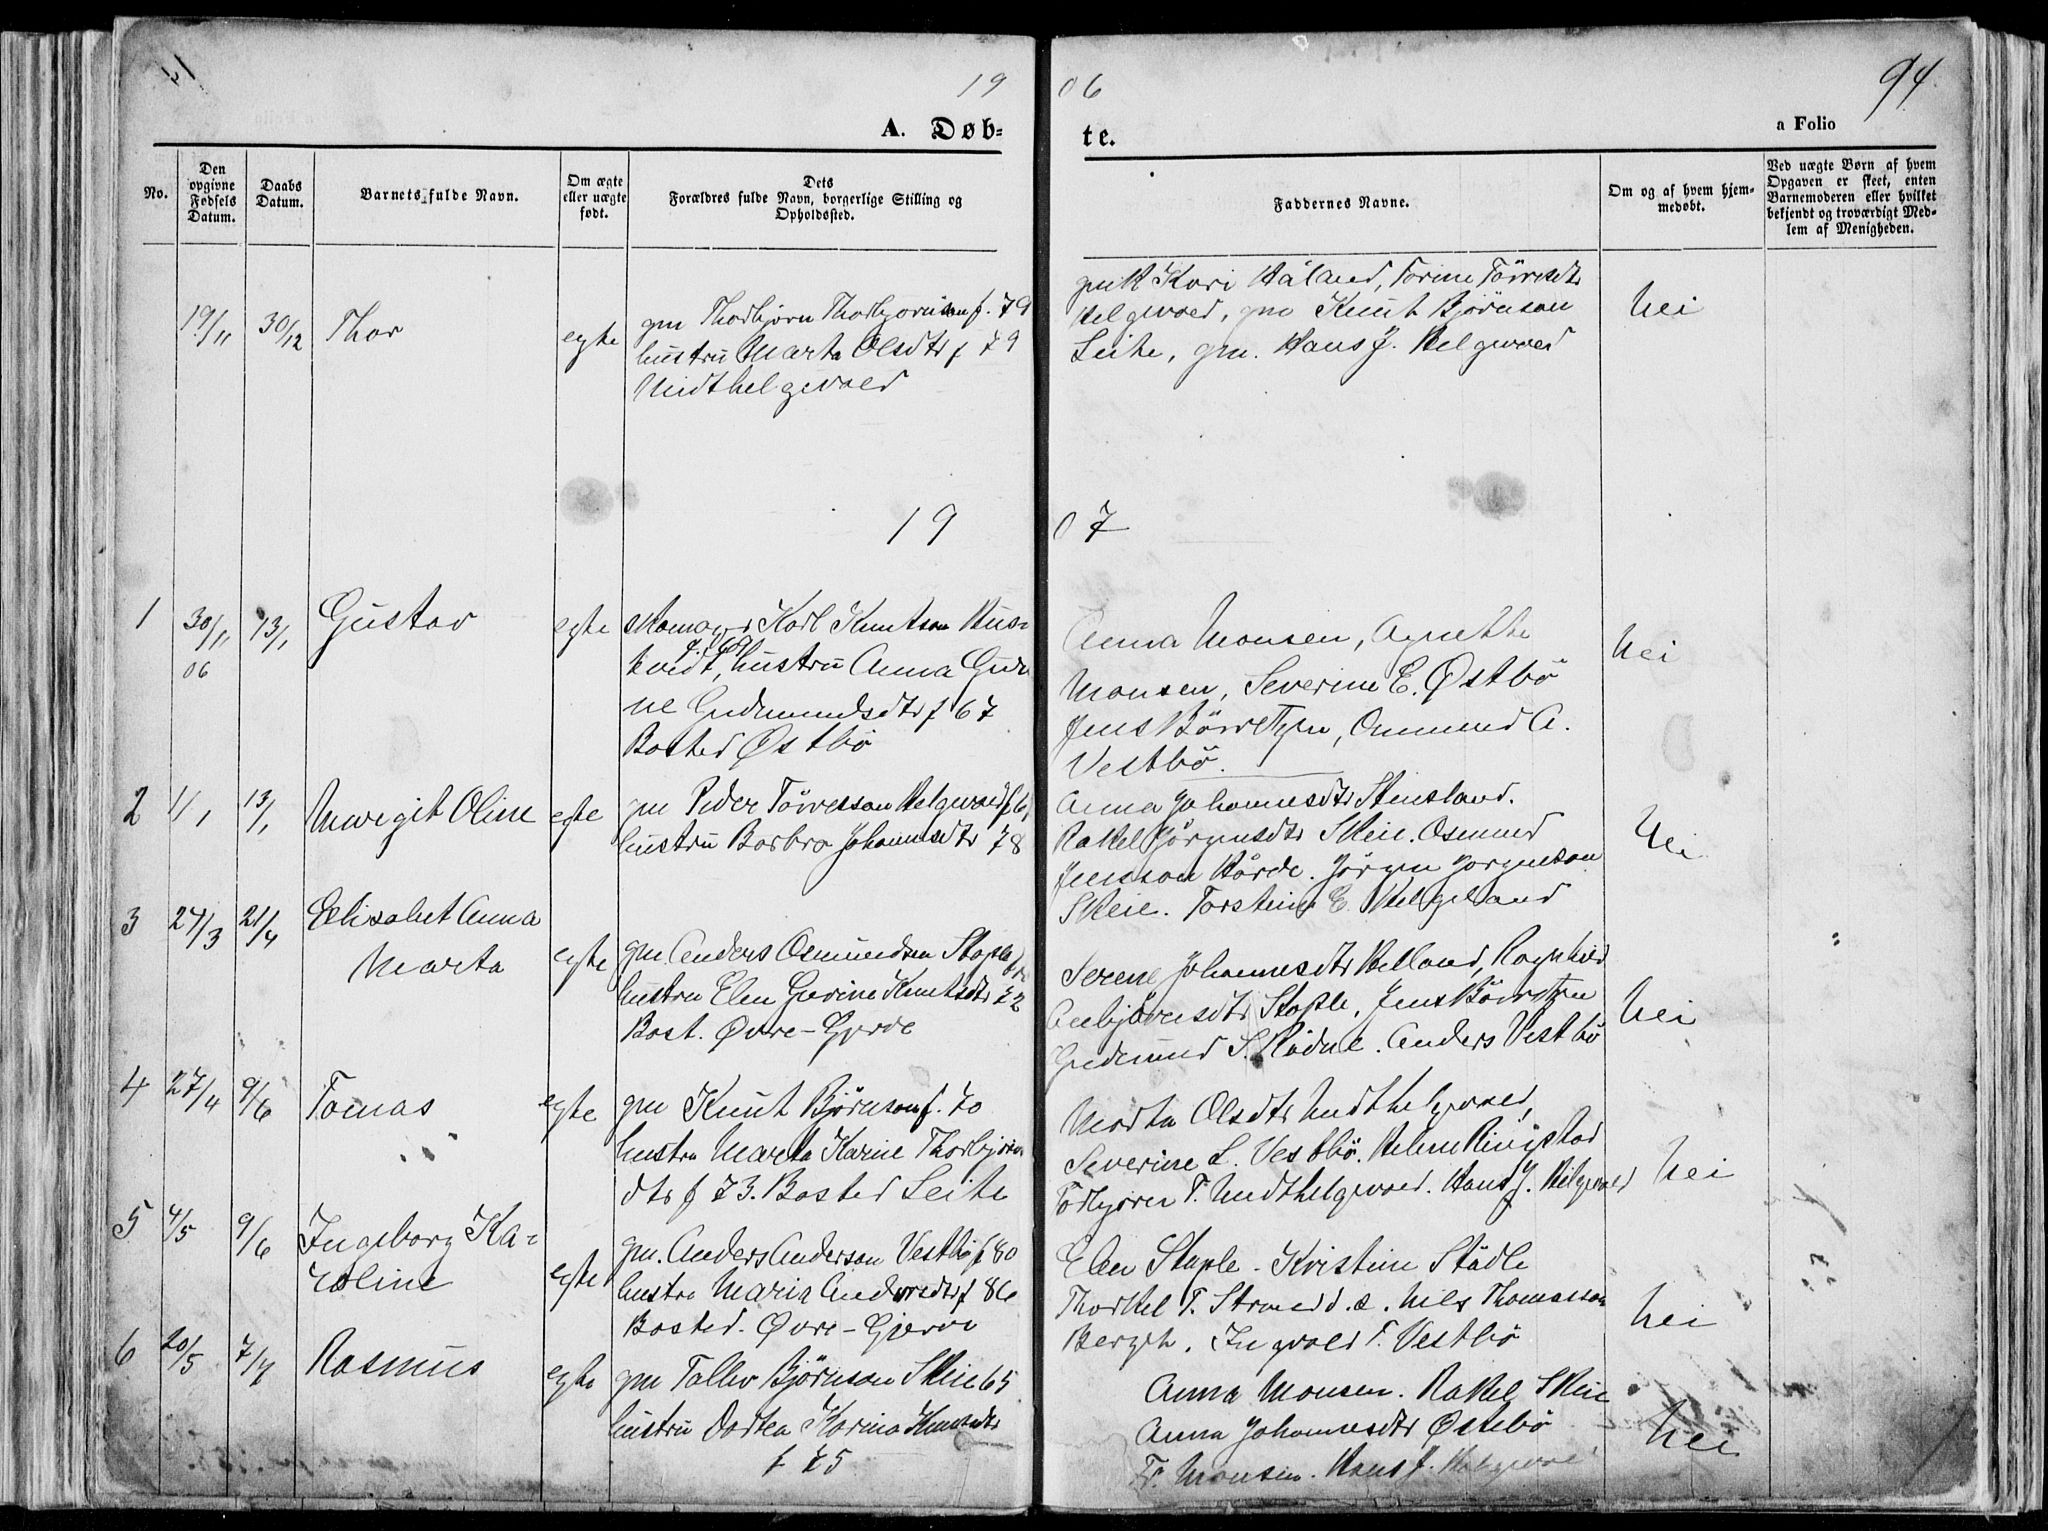 19 06
94
A. Døb= te.
a Folio
No.
Den opgivne Fødsels Datum.
Daabs Datum.
Barnets fulde Navn.
Om ægte eller uægte født.
Dets Forældres fulde Navn, borgerlige Stilling og Opholdssted.
Faddernes Navne.
Om og af hvem hjemmedøbt.
Ved uægte Børn af hvem Opgaven er skeet, enten Barnemoderen eller hvilket bekjendt og troværdigt Medlem af Menigheden.
19/11 30/12 Thor egte
gm Thorbjørn Thorbjørnson f. 79
hustru Marta Olsdtr f 79
Midthelgevold
Kari Håland, Torine Törresdtr
Helgevold, gm Knut Björnson
Leite, gm. Hans J. Helgevold
Nei
19 07
1 30/11 06 13/1 Gustav egte
Karl Knutson Hus=
kvidt, hustru Anna Gur
ine Gudmundsdtr f 67
Bosted Østbö
Anna Monsen, Agnethe
Monsen, Severine E. Østbö
Jens Bövretzen, Ommund A.
Vestbö.
Nei
2 1/1 13/1 Margit Oline egte
gm Peder Törresson Helgevold f 6
hustru Barbro Johannesdtr 78
Anna Johannesdtr Stensland.
Rakel Jörgensdtr Skeie. Osmund
Jensson Hörde. Jörgen Jorgenson
Skeie. Torstein E. Helgeland
Nei
3 24/3 21/4 Elisabet Anna
Marta egte
gm. Anders Osmundsen Stople
hustru Elen Gurine Knutsdtr 72
Bost. Øvre-Gjerde
Serene Johannesdtr Helland, Ragnhild
Anbjörnsdtr Stople, Jens Bövretzen
Gudmund S. Rödne. Anders Vestbö
Nei
4 27/4 9/6 Tomas egte
gm Knut Björnson f. 70
hustru Marta Karine Thorbjörns
dtr f 73. Bosted Leite
Marta Olsdtr Midthelgevold,
Severine L. Vestbö. Helene Ringstad
Torbjörn T. Midthelgevold. Hans J. Helgevold
Nei
5 4/5 9/6 Ingeborg Ka=
roline egte
gm. Anders Anderson Vestbö f 80
hustru Maria Andersdtr f 86
Bosted. Øvre-Gjerde
Elen Stople. Kristine Städle
Thorkel T. Strand d.æ. Nils Thomasson
Bergeh. Ingvald T. Vestbö
Nei
6 20/5 7/7 Rasmus egte
gm Tollev Björnson Skeie 65
hustru Dortea Karina Knutsdtr
f 75
Anna Monsen. Rakel Skeie
Anna Johannesdtr Østebö
Fr. Monsen. Hans J. Helgevold
Nei